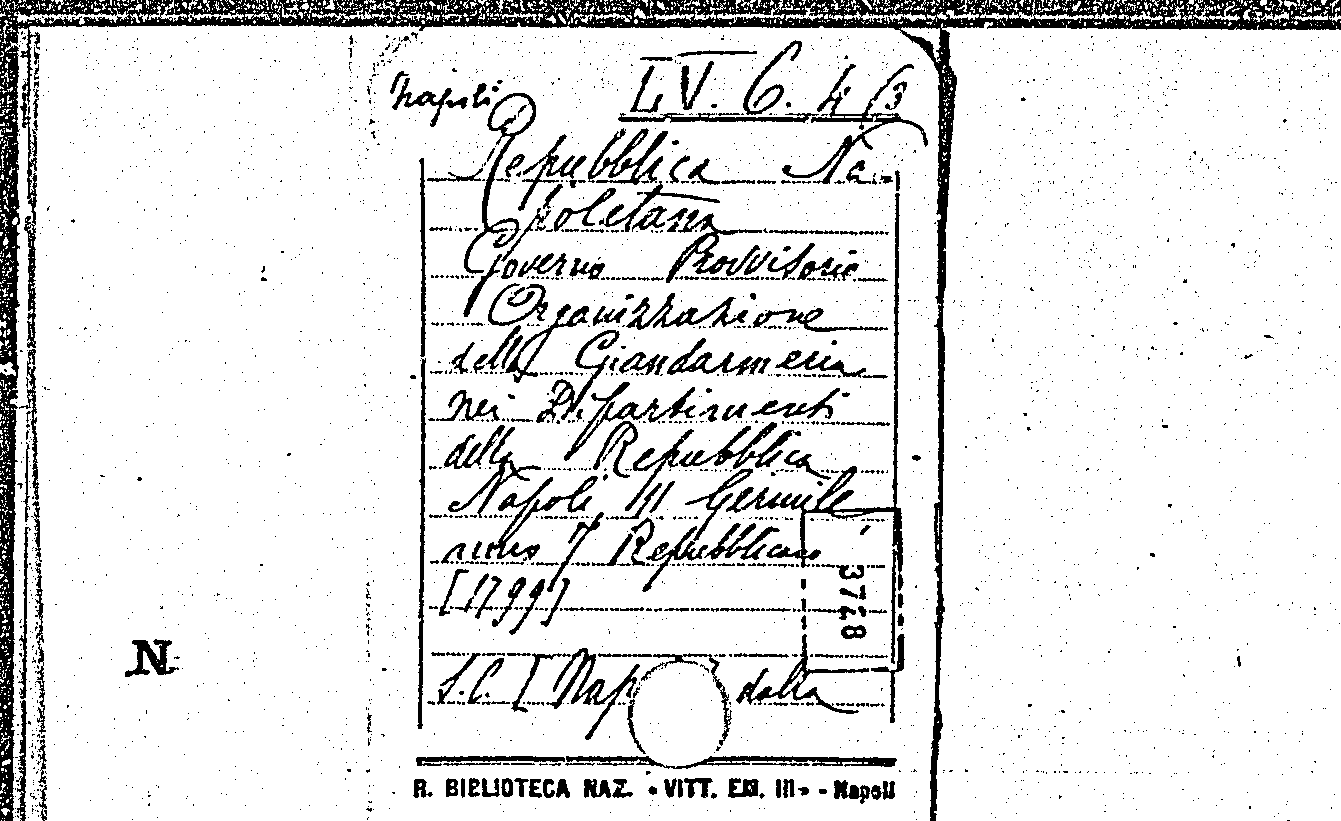 Napoli
L.V. 6. 4 (3
Repubblica Na-
poletana
Governo Provvisorio
Organizzazione
della Giandarmeria
nei Dipartimenti
della Repubblica
Napoli 111 Germile
anno 7 Repubblicano
[1799]
3728
S.C. [Nap dalla
N
R. BIBLIOTECA NAZ. • VITT. EM. III • - Napoli